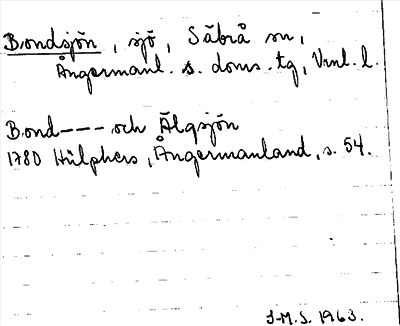 Bondsjön, sjö, Säbrå sn,
Ångermanl. s. doms. tg, Vnl. l.
Bond--- och Älgsjön
1780 Hülphers, Ångermanland, s. 54.
J-M.S. 1963.